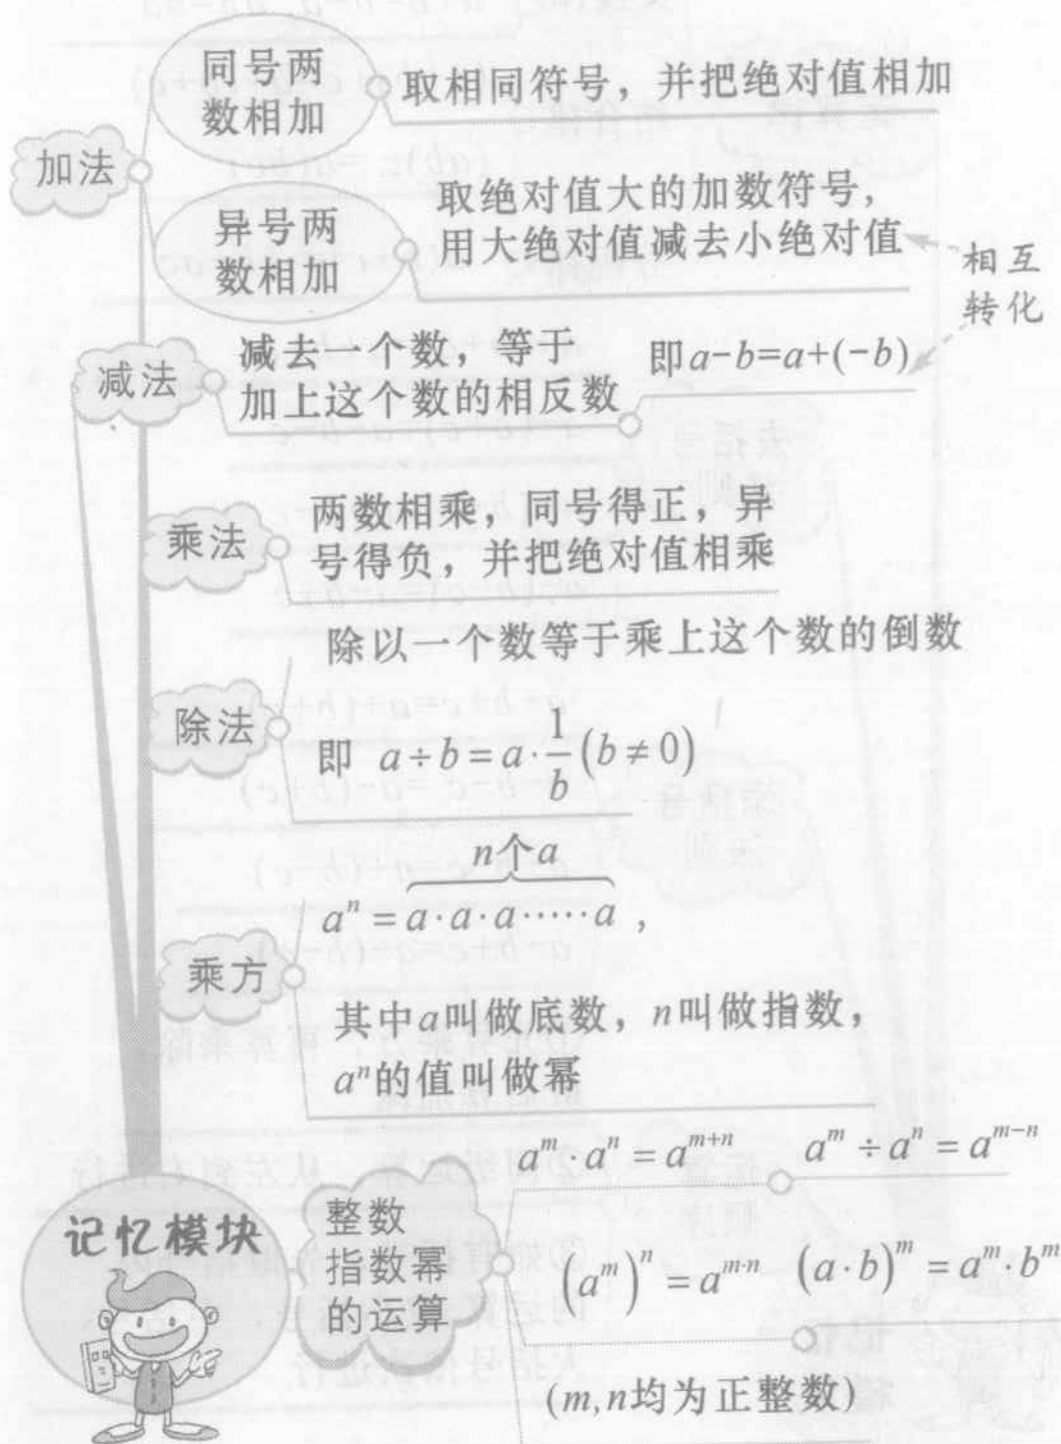 同号两
数相加
取相同符号，并把绝对值相加
加法
异号两
数相加
取绝对值大的加数符号，
用大绝对值减去小绝对值
相互
转化
减法
减去一个数，等于
加上这个数的相反数
即a-b=a+(-b)
乘法
两数相乘，同号得正，异
号得负，并把绝对值相乘
除以一个数等于乘上这个数的倒数
除法
即 a÷b=a·1/b(b≠0)
n个a
aⁿ=a·a·a·····a，
乘方
其中a叫做底数，n叫做指数，
aⁿ的值叫做幂
记忆模块
整数
指数幂
的运算
a^m·a^n=a^{m+n}
a^m÷a^n=a^{m-n}
(a^m)^n=a^{m·n}
(a·b)^m=a^m·b^m
(m,n均为正整数)